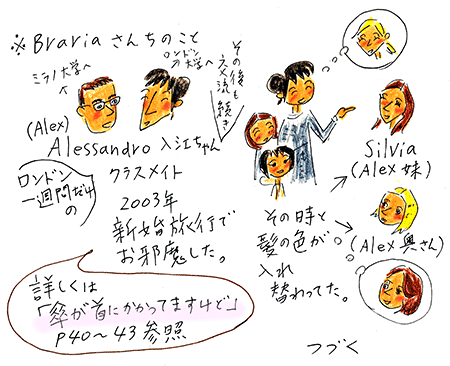 ※Bravia さんちのこと
ミラノ大学へ
ロンドンの大学へ
その後も
交流続き
(Alex)
Alessandro 入江ちゃん
ロンドン
一週間だけ
の
クラスメイト
2003年
新婚旅行で
お邪魔した。
Silvia
(Alex 妹)
その時と
髪の色が。
入れ
替わってた。
(Alex 奥さん)
詳しくは
「傘が首にかかってますけど」
P40〜43参照
つづく